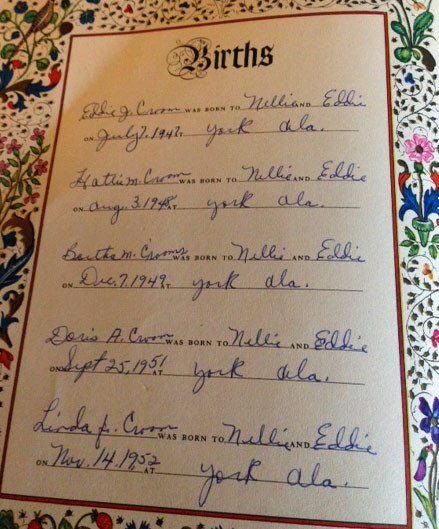 Births
Eddie J. Croom WAS BORN TO Nellie AND Eddie
ON July 7, 1947, York Ala.
Hattie M. Croom WAS BORN TO Nellie AND Eddie
ON Aug. 3, 1948, AT York Ala.
Bertha M. Croom WAS BORN TO Nellie AND Eddie
ON Dec. 7, 1949, York Ala.
Doris A. Croom WAS BORN TO Nellie AND Eddie
ON Sept 25, 1951 AT York Ala.
Linda J. Croom WAS BORN TO Nellie AND Eddie
ON Nov. 14, 1952 AT York Ala.